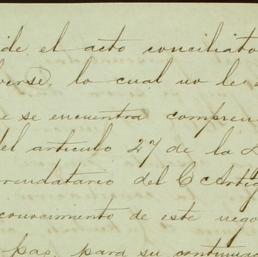 ide el acto conciliato
verse, lo cual no le
e se encuentra compren
del articulo 27 de la L
rrendatareo del C Artig
conocimiento de este nego
paz, para su continuac